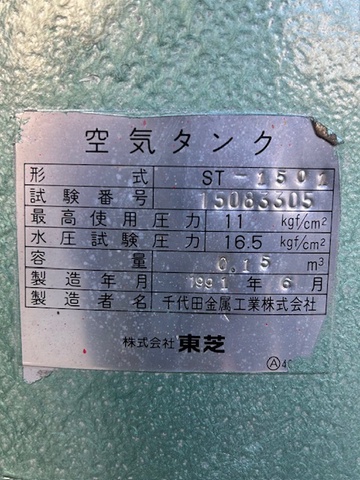 空気タンク
形式 ST-1501
試験番号 15083305
最高使用圧力 11 kgf/cm²
水圧試験圧力 16.5 kgf/cm²
容量 0.15 m³
製造年月 1991年6月
製造者名 千代田金属工業株式会社
株式会社 東芝
Ⓐ